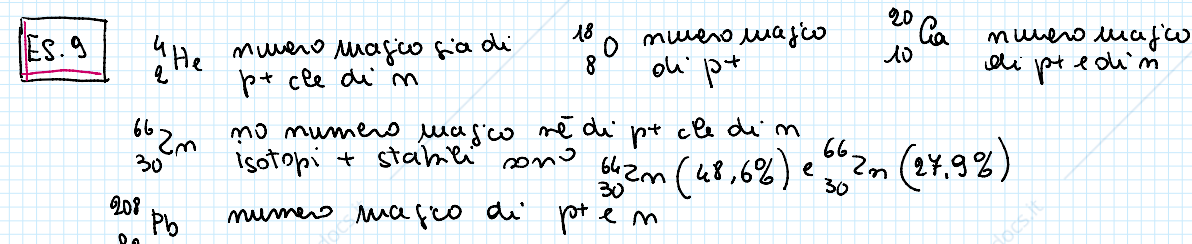 ES. 9
⁴₂He numero magico sia di p+ che di n
¹⁸₈O numero magico di p+
²⁰₁₀Ca numero magico di p+ e di n
⁶⁶₃₀Zn no numero magico nē di p+ che di n
isotopi + stabili sono ⁶⁴₃₀Zn (48,6%) e ⁶⁶₃₀Zn (27,9%)
²⁰⁸Pb numero magico di p+ e n